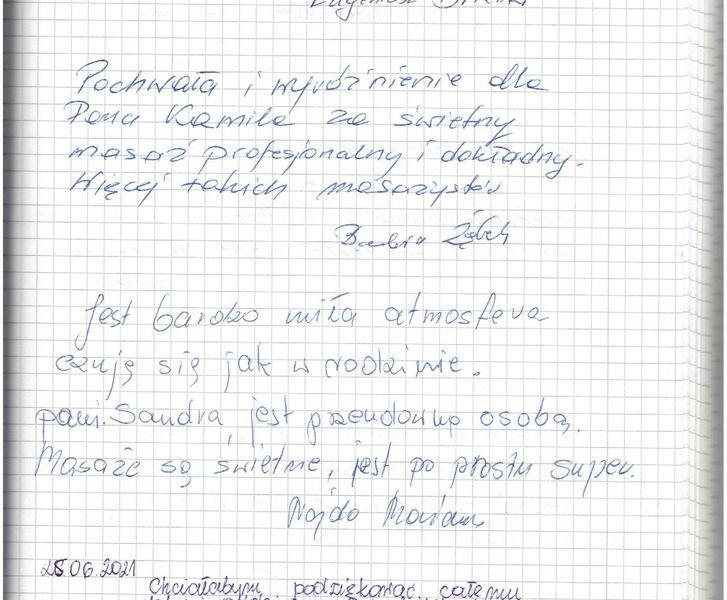 Pochwała i wyróżnienie dla
Pana Kamila za świetny
masaż profesjonalny i dokładny.
Więcej takich masażystów
Jest bardzo miła atmosfera
czuję się jak w rodzinie.
pani. Sandra jest przeudowną osobą.
Masaże są świetne, jest po prostu super.
25.06.2021
Chciałabym podziękować całemu